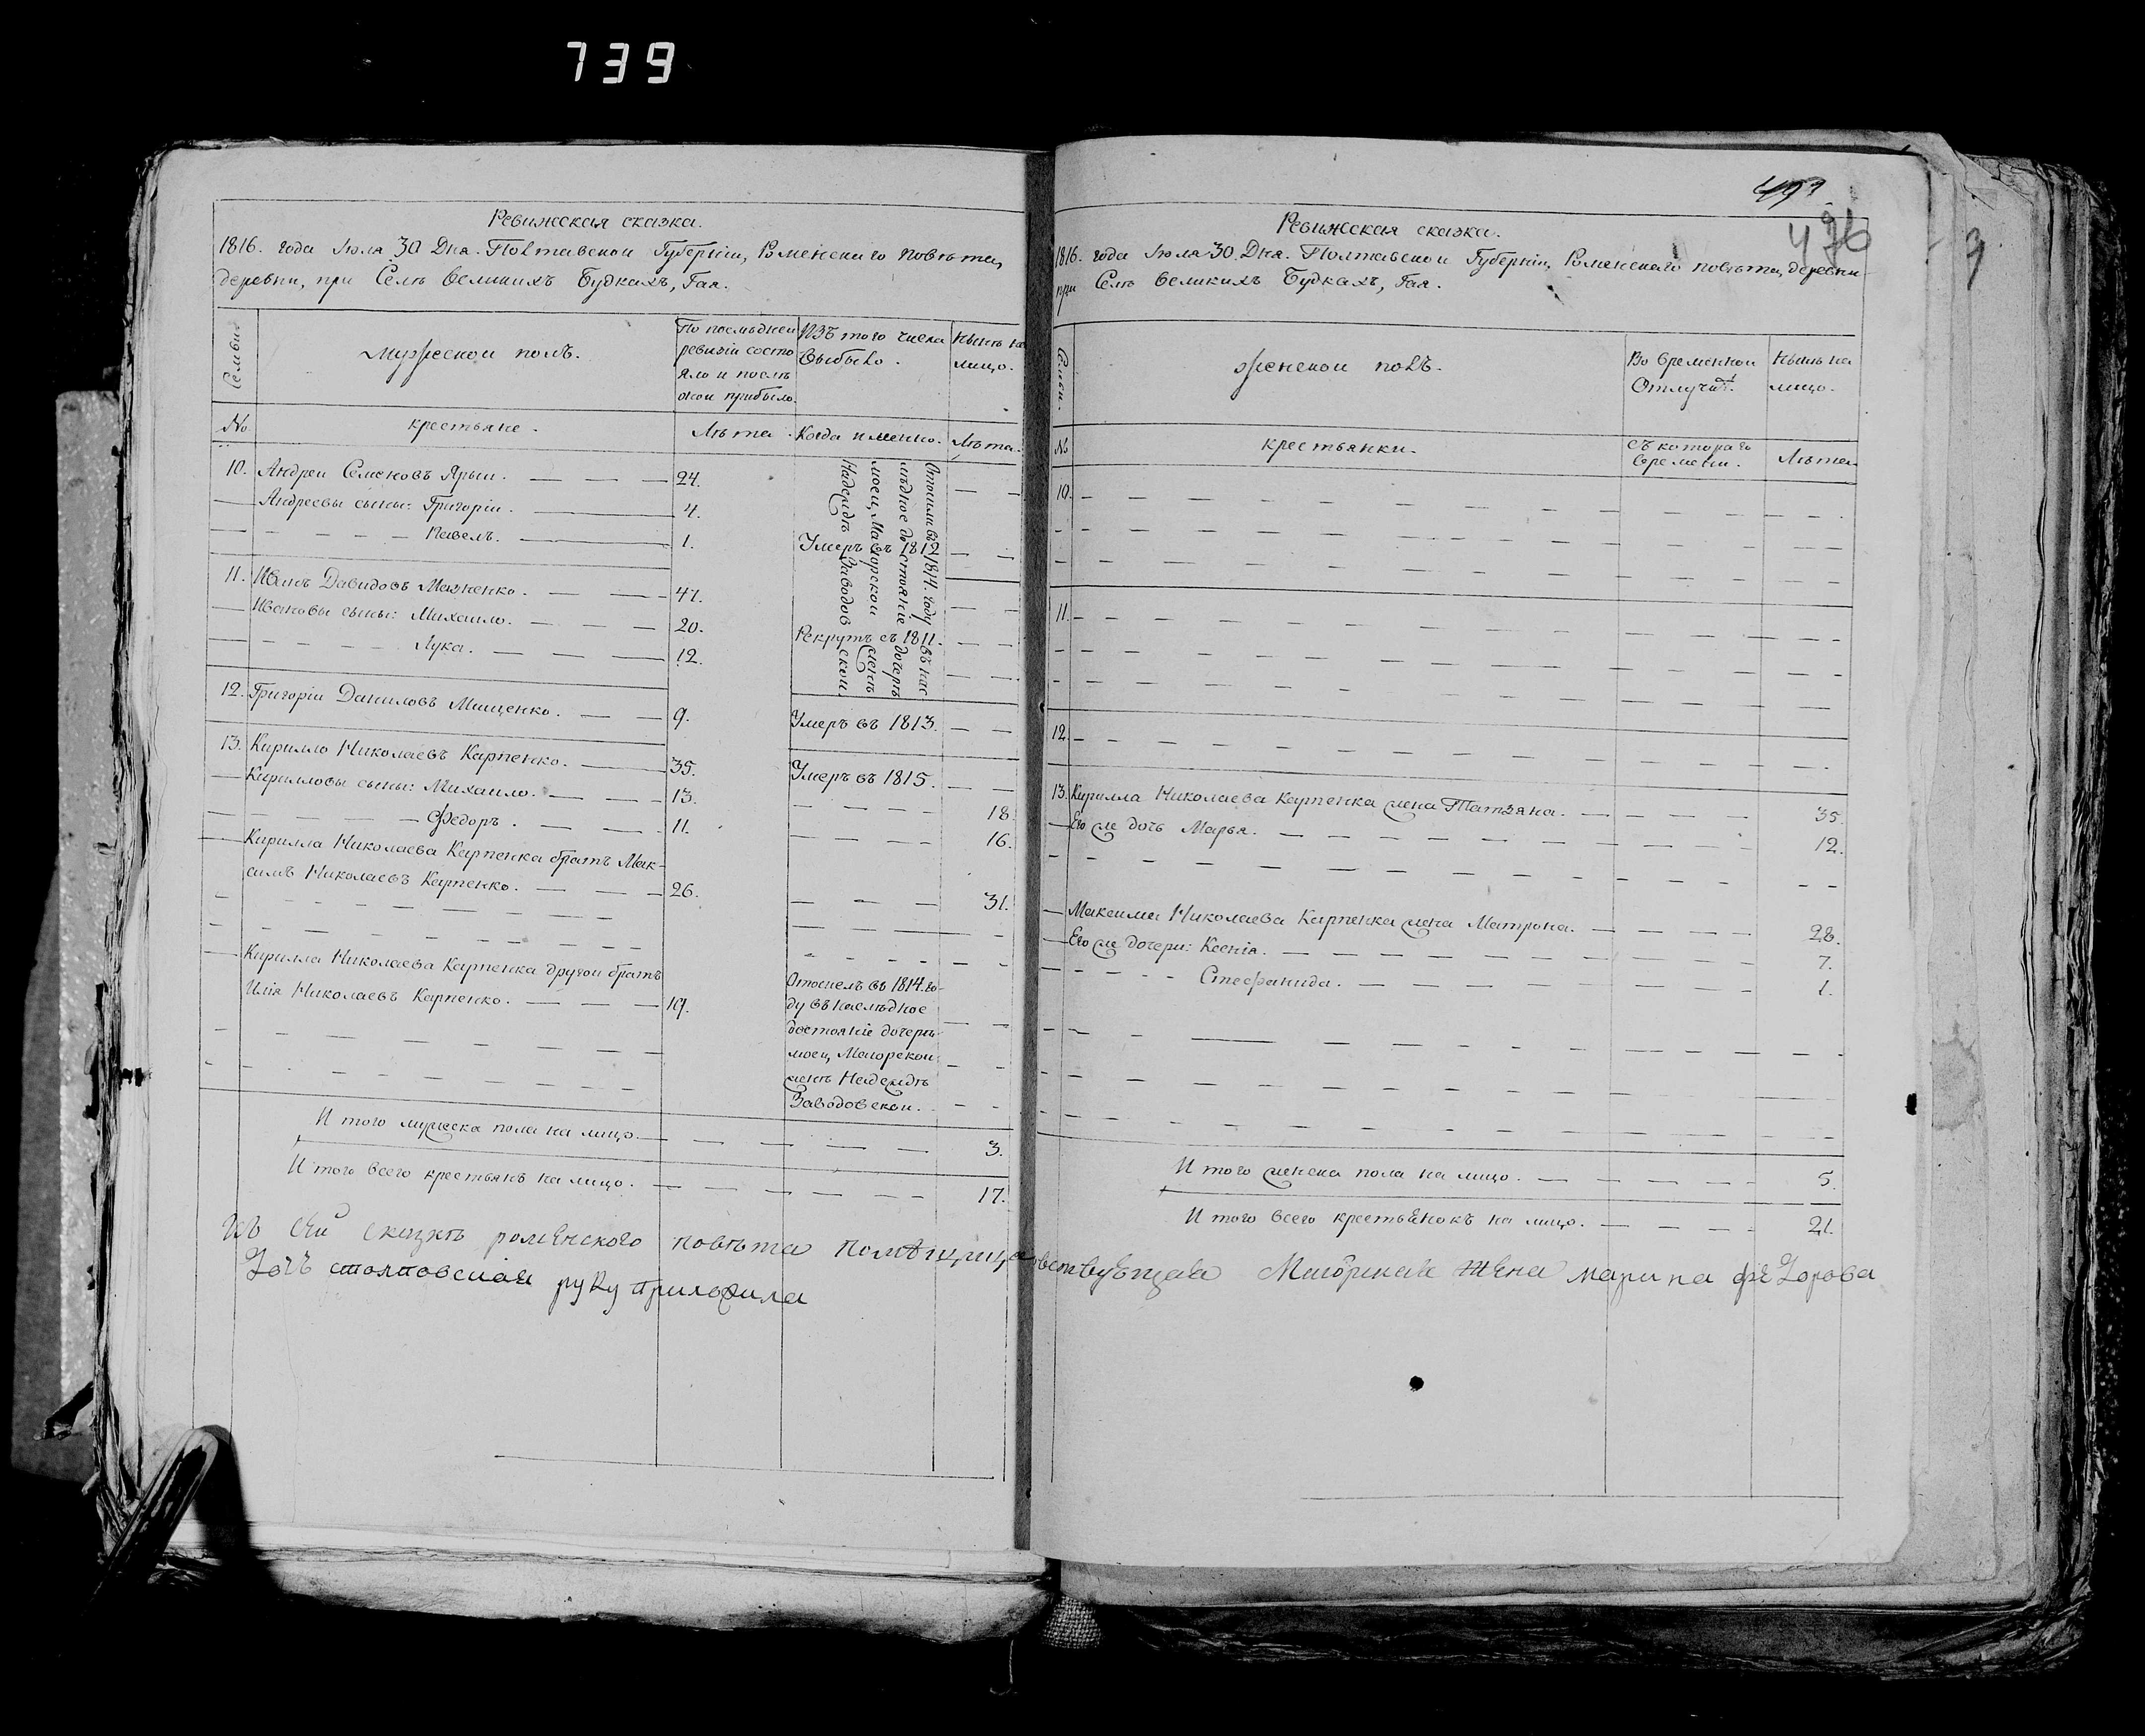 739
Ревижская сказка.
1816. года Іюля 30 Дня. Полтавской Губерніи, Роменскаго повѣта,
деревни, при Селѣ Великихъ Будкахъ, Гая.
Семьи
Мужескои полъ.
По послѣдней
ревизіи состо
яло и послѣ
оной прибыло.
Изъ того числа
Выбыло.
Нынѣ на
лицо.
№
крестьяне.
Лѣта.
Когда именно.
Лѣта.
10. Андреи Семеновъ Ярыш. 24.
Отошли въ 1814. году въ нас
лѣдное достояніе дочерѣ
моеи, Маіорской женѣ
Надеждѣ Заводовской
Андреевы сыны: Григоріи. 4.
Павелъ. 1. Умеръ въ 1812
11. Иванъ Давидовъ Мазненко. 47.
Ивановы сыны: Михаило. 20. Рекрутъ съ 1811.
Лука. 12.
12. Григоріи Даниловъ Мищенко. 9. Умеръ въ 1813.
13. Кирилло Николаевъ Карпенко. 35. Умеръ въ 1815.
Кирилловы сыны: Михаило. 13. 18.
Федоръ. 11. 16.
Кирилла Николаева Карпенка братъ Мак-
симъ Николаевъ Карпенко. 26. 31.
Кирилла Николаева Карпенка другои братъ
Илія Николаевъ Карпенко. 19.
Отошелъ въ 1814. го-
ду въ наслѣдное
достояніе дочери
моеи, Маіорской
женѣ Надеждѣ
Заводовской.
И того мужеска пола на лицо 3.
И того всего крестьянъ на лицо. 17.
476
9
Ревижская сказка.
1816. года Іюля 30. Дня. Полтавской Губерніи, Роменскаго повѣта, деревни
при Селѣ Великихъ Будкахъ, Гая.
Семьи.
Женскои полъ.
Во временной
Отлучкѣ.
Нынѣ на
лицо.
№
крестьянки.
съ котораго
времени.
Лѣта.
10.
11.
12.
13. Кирилла Николаева Карпенка жена Татьяна. 35.
Его же дочь Марья. 12.
Максима Николаева Карпенка жена Матрона. 28.
Его же дочери: Ксенія. 7.
Стефанида. 1.
И того женска пола на лицо. 5.
И того всего крестьянокъ на лицо. 21.
Къ сей сказкѣ роменского повѣта помѣщица Маіорская жена марина феѣдорова
дочъ столповская руку приложила